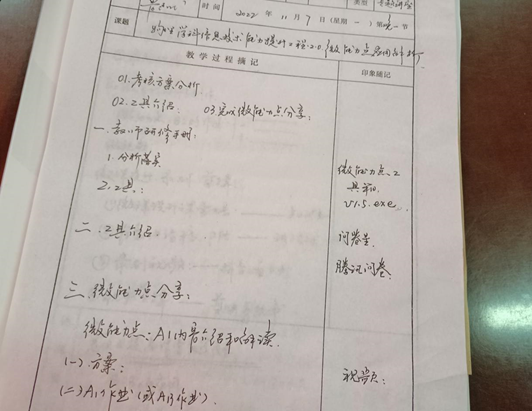 时间 2022年11月7日(星期一)第一节
课题
小学学科信息技术能力提升工程2.0微能力点案例解析
教学过程摘记 印象随记
01.考核方案分析
02.工具介绍 03完成微能力点分享:
一.教师研修手册:
1.分析落实
2.工具: 微能力点工具
V1.5.exe
二.工具介绍 问卷星.
腾讯问卷.
三.微能力点分享:
微能力点:A1内容介绍和解读
(一)方案: 视频:
(二)A1作业(或A13作业).